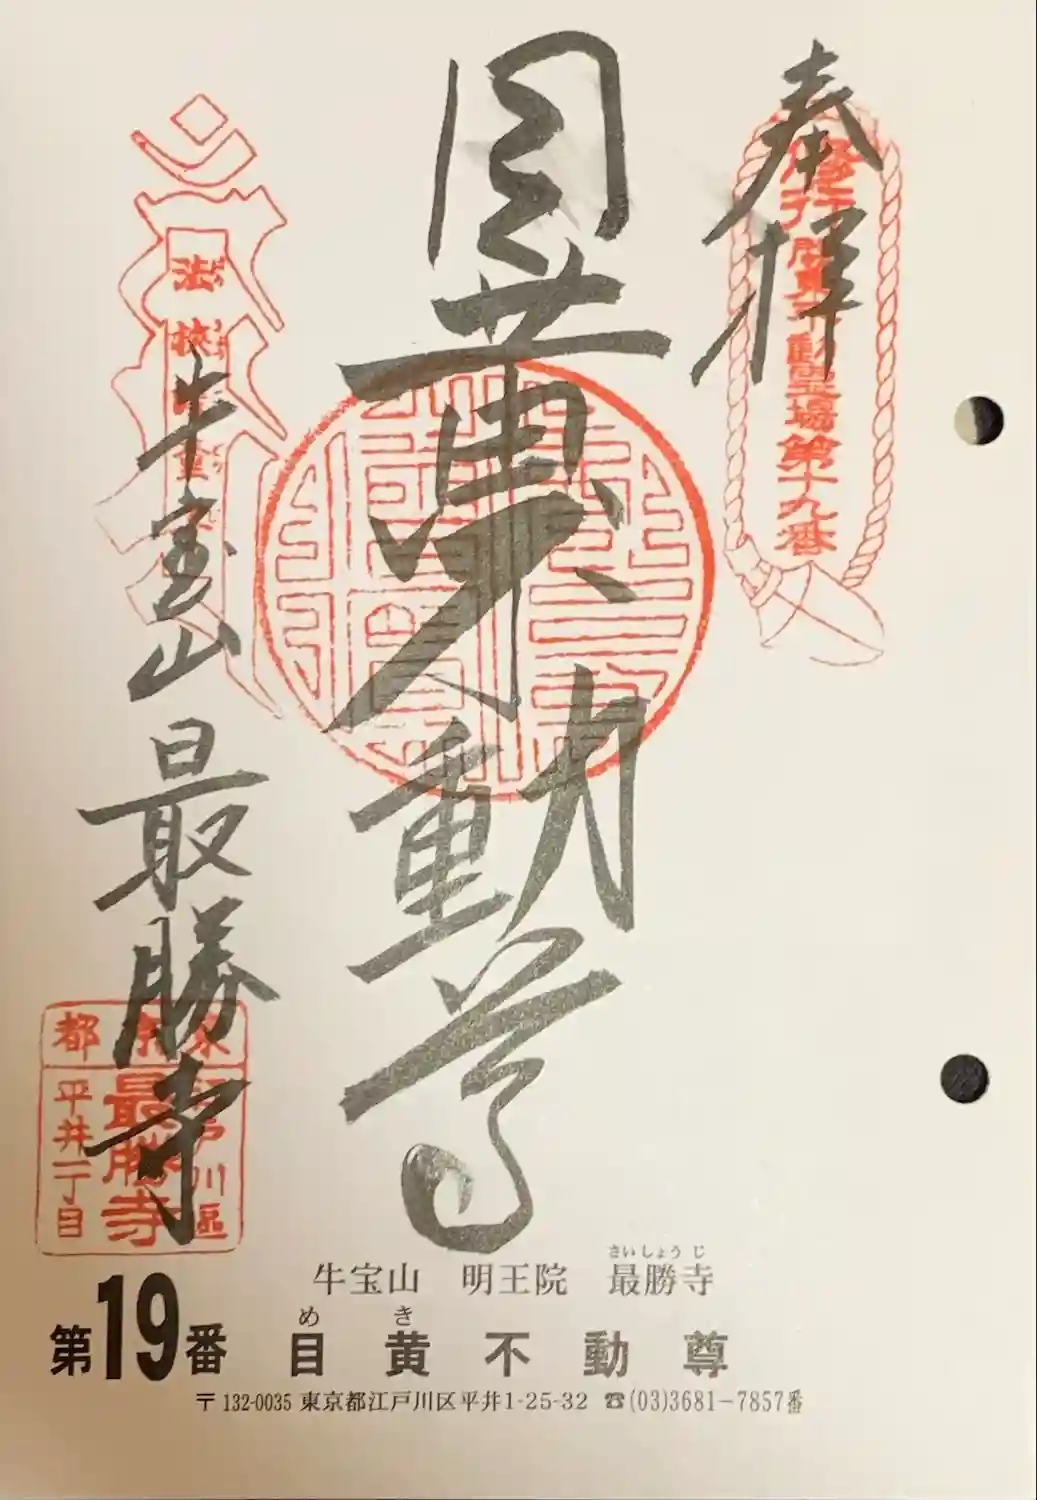 奉拝
関東不動霊場第十九番
目黄不動尊
牛宝山
最勝寺
東京都
江戸川區
最勝寺
平井一丁目
さいしょうじ
牛宝山 明王院 最勝寺
めき
第19番 目黄不動尊
〒132-0035 東京都江戸川区平井1-25-32 ☎(03)3681-7857番